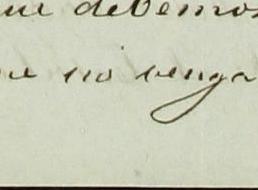 que debemos
que no venga